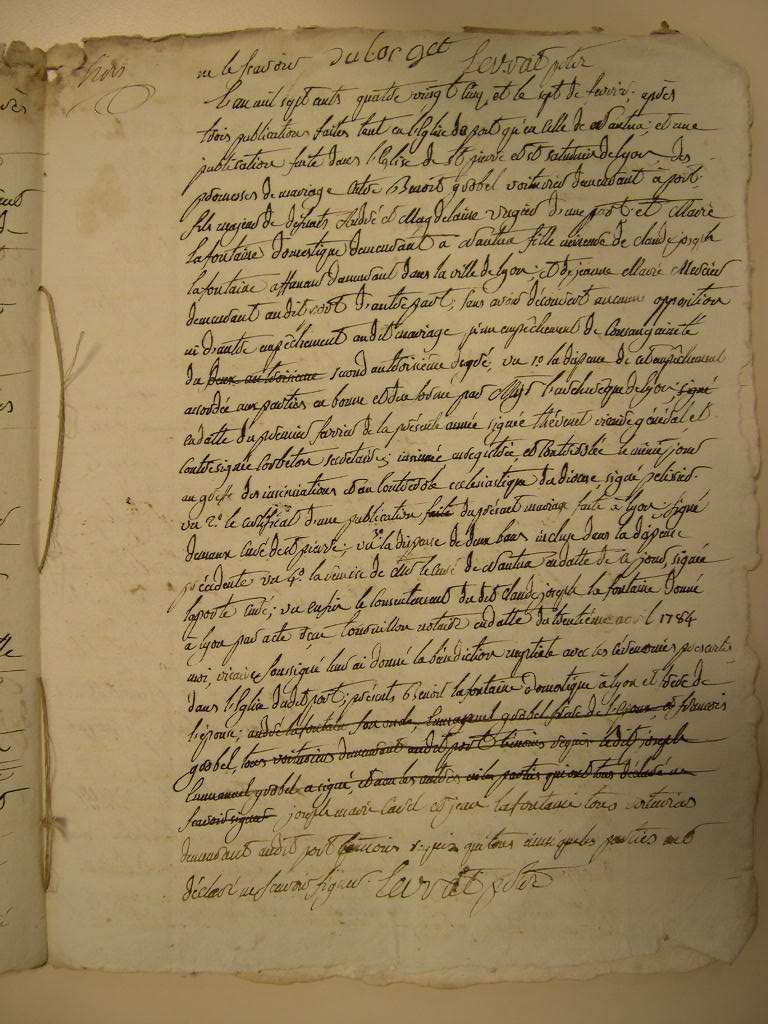 ne le scavoir dulorget Levrat ptre
L'an mil sept cents quatre vingt cinq, et le sept de fevrier, après
trois publications faites tant en l'Eglise de port qu'en celle de Nantua, et une
publication faite dans l'Eglise de St pierre et st saturnin de Lyon, des
promesses de mariage entre Benoit gobbel voiturier demeurant à port
fils majeur de défunts André et Magdelaine d'une part et Marie
lafontaine domestique demeurant à Nantua fille mineure de claude joseph
lafontaine affaneur demeurant dans la ville de lyon, et de jeanne Marie Mercier
demeurant audit port d'autre part, sans avoir découvert aucune opposition
ni d'autre empêchement audit mariage qu'un empêchement de consanguinité
du deux au troisieme second au troisième degré, vu 1º la dispense de cet empêchement
accordée aux parties en bonne et due forme par Mgr l'archeveque de lyon, signé
en datte du premier fevrier de la présente année signée thévenet vicaire général et
contresignée secretaire, insinuée enregistrée, et controlée le même jour
au greffe des insinuations et au controle ecclésiastique du diocese, signé
vu 2º le certificat d'une publication faite du présent mariage faite à lyon, signé
curé de st pierre, vu 3º la dispense de deux bans incluse dans la dispense
précédente vu 4º la remise de Mr le curé de Nantua en datte de ce jour, signée
laporte curé, vu enfin le consentement dudit claude joseph la fontaine donné
à lyon par acte notaire en datte du avril 1784
moi, vicaire soussigné leur ai donné la bénédiction nuptiale avec les cérémonies prescrites
dans l'Eglise dudit port, présents Benoit lafontaine domestique à lyon et frere de
l'épouse, andré lafontaine son oncle, Emmanuel gobbel frere de l'époux, et françois
gobbel, tous voituriers demeurant audit port témoins requis ledit joseph
Emmanuel gobbel a signé, et non les autres ni les parties qui ont tous déclaré ne
scavoir signer joseph marie et jean lafontaine tous voituriers
demeurant audit port témoins requis qui tous ainsi que les parties ont
déclaré ne scavoir signer. Levrat ptre